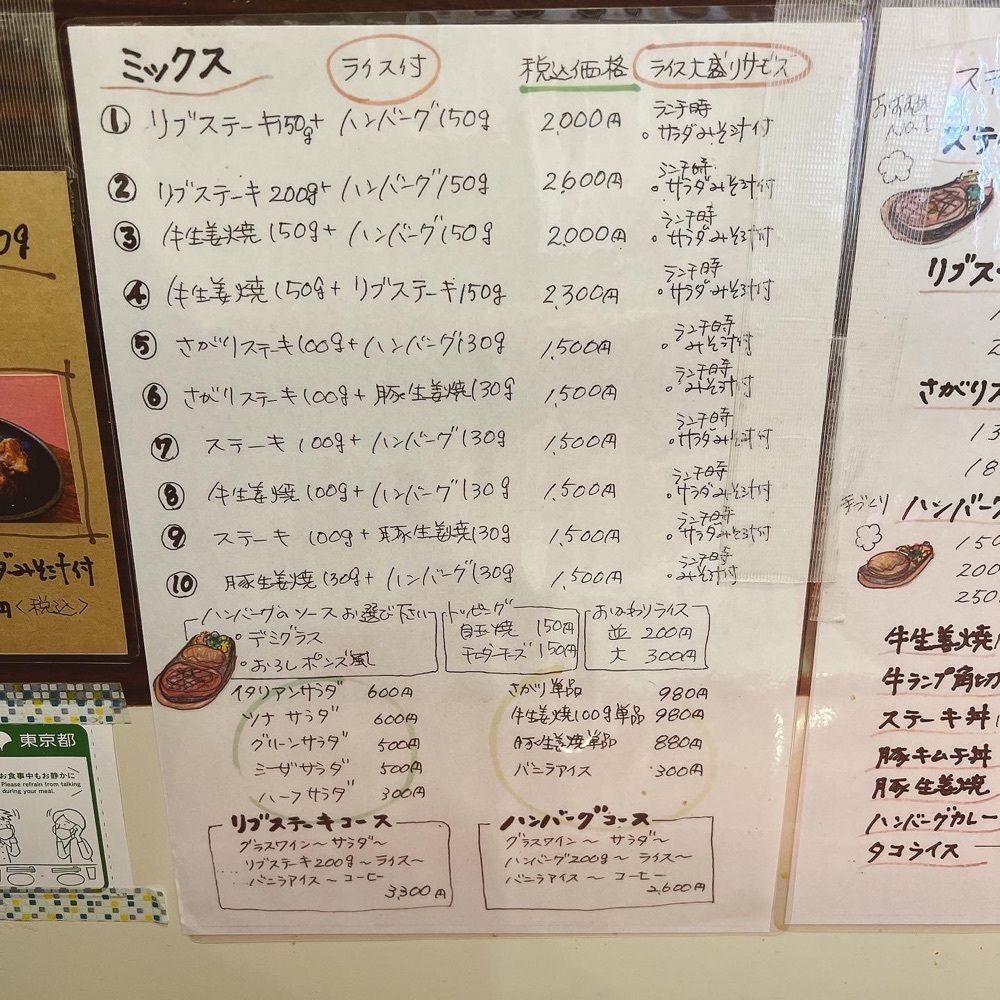 ミックス ライス付 税込価格 ライス大盛りサービス
① リブステーキ150g+ハンバーグ150g 2,000円 ランチ時 。サラダみそ汁付
② リブステーキ200g+ハンバーグ150g 2,600円 ランチ時 。サラダみそ汁付
③ 牛生姜焼150g+ハンバーグ150g 2,000円 ランチ時 。サラダみそ汁付
④ 牛生姜焼150g+リブステーキ150g 2,300円 ランチ時 。サラダみそ汁付
⑤ さがりステーキ100g+ハンバーグ130g 1,500円 ランチ時 。みそ汁付
⑥ さがりステーキ100g+豚生姜焼130g 1,500円 ランチ時 。みそ汁付
⑦ ステーキ100g+ハンバーグ130g 1,500円 ランチ時 。サラダみそ汁付
⑧ 牛生姜焼100g+ハンバーグ130g 1,500円 ランチ時 。サラダみそ汁付
⑨ ステーキ100g+豚生姜焼130g 1,500円 ランチ時 。サラダみそ汁付
⑩ 豚生姜焼130g+ハンバーグ130g 1,500円 ランチ時 。みそ汁付
ハンバーグのソースお選び下さい
。デミグラス
。おろしポンズ風
トッピング
目玉焼 150円
チェダーチーズ 150円
おかわりライス
並 200円
大 300円
イタリアンサラダ 600円
ツナサラダ 600円
グリーンサラダ 500円
シーザサラダ 500円
ハーフサラダ 300円
さがり単品 980円
牛生姜焼100g単品 980円
豚生姜焼単品 880円
バニラアイス 300円
リブステーキコース
グラスワイン〜サラダ〜
リブステーキ200g〜ライス〜
バニラアイス〜コーヒー
3,300円
ハンバーグコース
グラスワイン〜サラダ〜
ハンバーグ200g〜ライス〜
バニラアイス〜コーヒー
2,600円
0g
みそ汁付
円〈税込〉
東京都
お食事中もお静かに
Please refrain from talking
during your meal.
おすすめ
No.1
ステ
リブス
さがりス
手づくり
ハンバーグ
150
200
250
牛生姜焼
牛ランプ角切
ステーキ丼
豚キムチ丼
豚生姜焼
ハンバーグカレー
タコライス